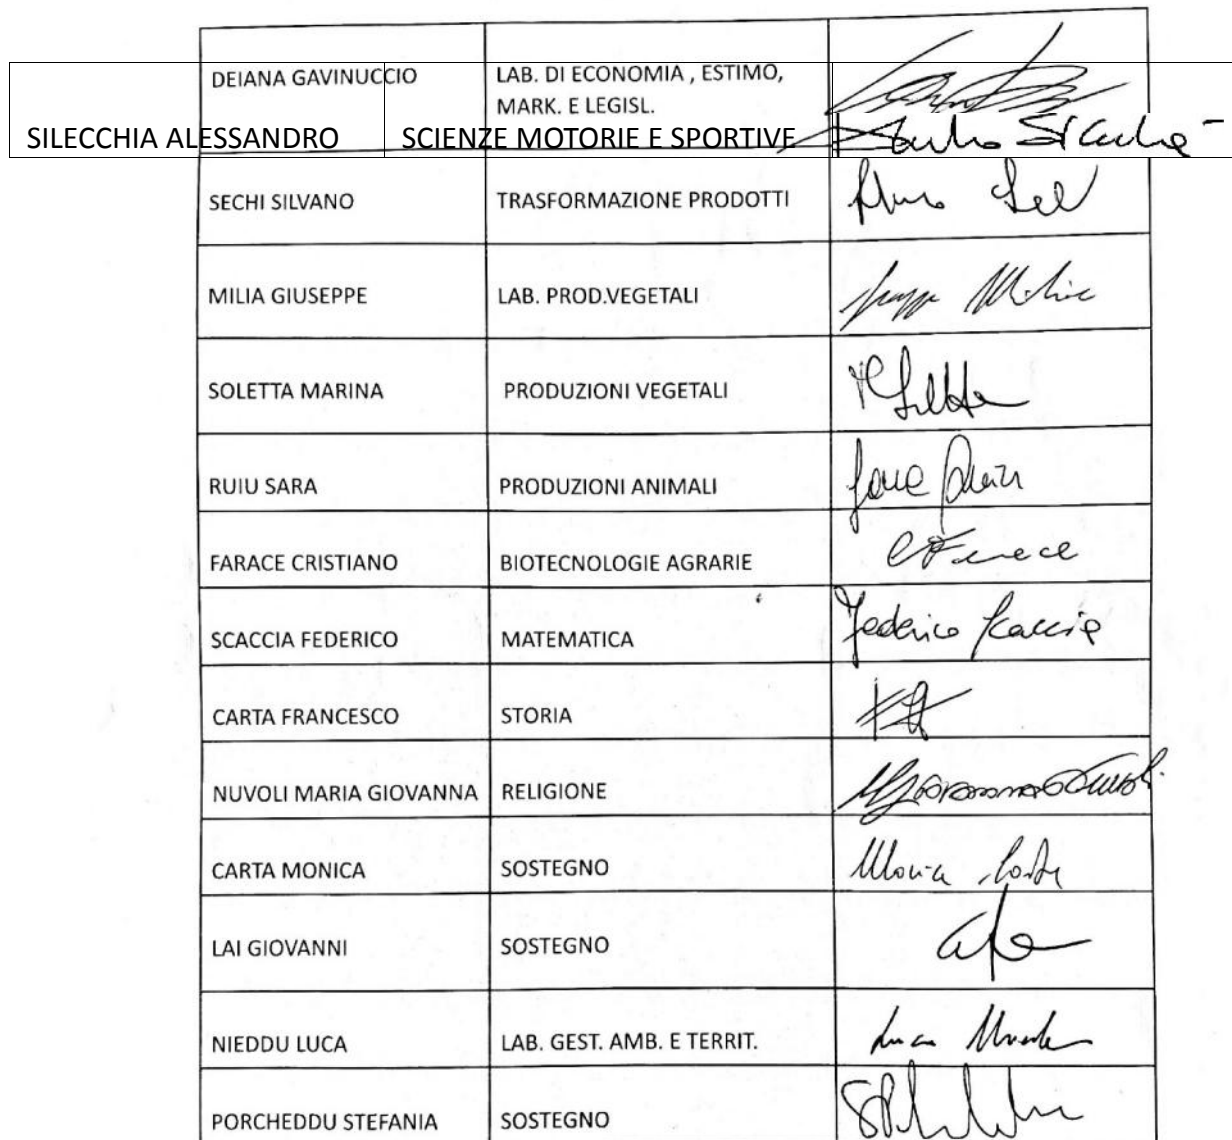 DEIANA GAVINUCCIO LAB. DI ECONOMIA , ESTIMO,
MARK. E LEGISL.
SILECCHIA ALESSANDRO SCIENZE MOTORIE E SPORTIVE
SECHI SILVANO TRASFORMAZIONE PRODOTTI
MILIA GIUSEPPE LAB. PROD.VEGETALI
SOLETTA MARINA PRODUZIONI VEGETALI
RUIU SARA PRODUZIONI ANIMALI
FARACE CRISTIANO BIOTECNOLOGIE AGRARIE
SCACCIA FEDERICO MATEMATICA Federico Scaccia
CARTA FRANCESCO STORIA
NUVOLI MARIA GIOVANNA RELIGIONE
CARTA MONICA SOSTEGNO
LAI GIOVANNI SOSTEGNO
NIEDDU LUCA LAB. GEST. AMB. E TERRIT.
PORCHEDDU STEFANIA SOSTEGNO